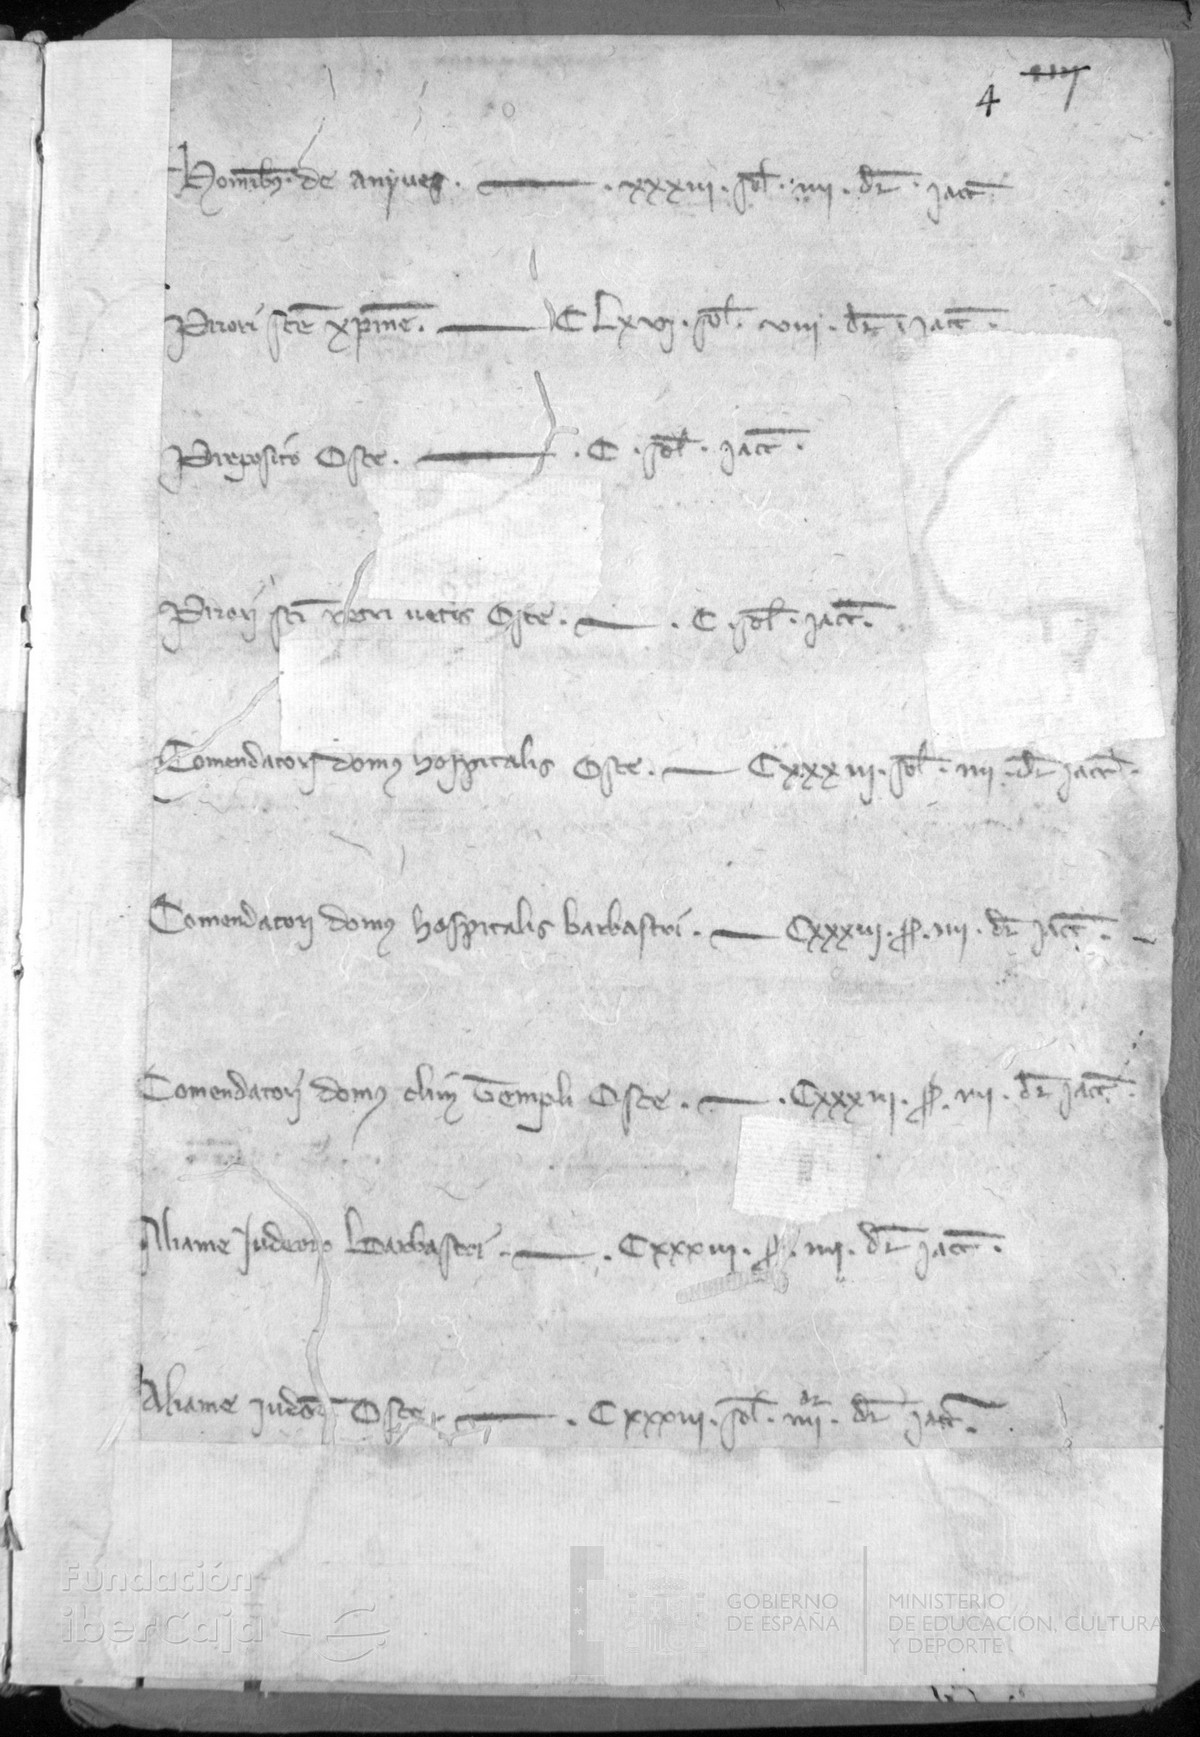 4 iiij
Homībȝ. de anyues. — . xxxiij. sol̄. iiij. dr̄. jacc̄
Priori sc̄e xp̄ine. — C Lxvj. sol̄. viij. dr̄. jacc̄.
Preposito Osce. — . C. sol̄. jacc̄.
Priorj sc̄i petri uet̄is Osce. — . C. sol̄. jacc̄.
Comendatorj domꝰ hospitalis Osce. — Cxxxiij. sol̄. iiij. dr̄ jacc̄.
Comendatorj domꝰ hospitalis barbastri. — Cxxxiij. ſſ. iiij. dr̄ jacc̄.
Comendatorj domꝰ Templi Osce. — . Cxxxiij. ſſ. iiij. dr̄ jacc̄.
Aliame Judeorꝫ Barbastri. — . Cxxxiij. ſſ. iiij. dr̄ jacc̄.
Aliame judeoꝝ Osce. — . Cxxxiij. sol̄. iiij. dr̄ jacc̄.
Fundación
iberCaja
GOBIERNO
DE ESPAÑA
MINISTERIO
DE EDUCACIÓN, CULTURA
Y DEPORTE